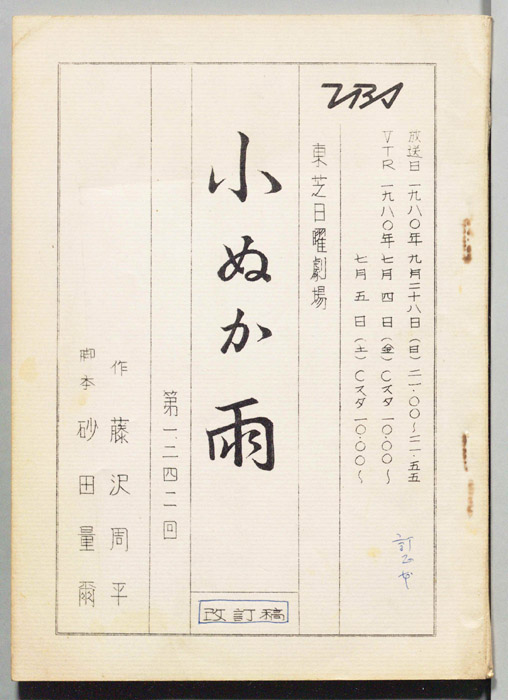 TBS
放送日 一九八〇年 九月二十八日(日)二一・〇〇〜二一・五五
VTR 一九八〇年 七月 四 日(金)Cスタ 一〇・〇〇〜
七月 五 日(土)Cスタ 一〇・〇〇〜
東芝日曜劇場
小ぬか雨
改訂稿
第一二四二回
作 藤沢周平
脚本 砂田量爾